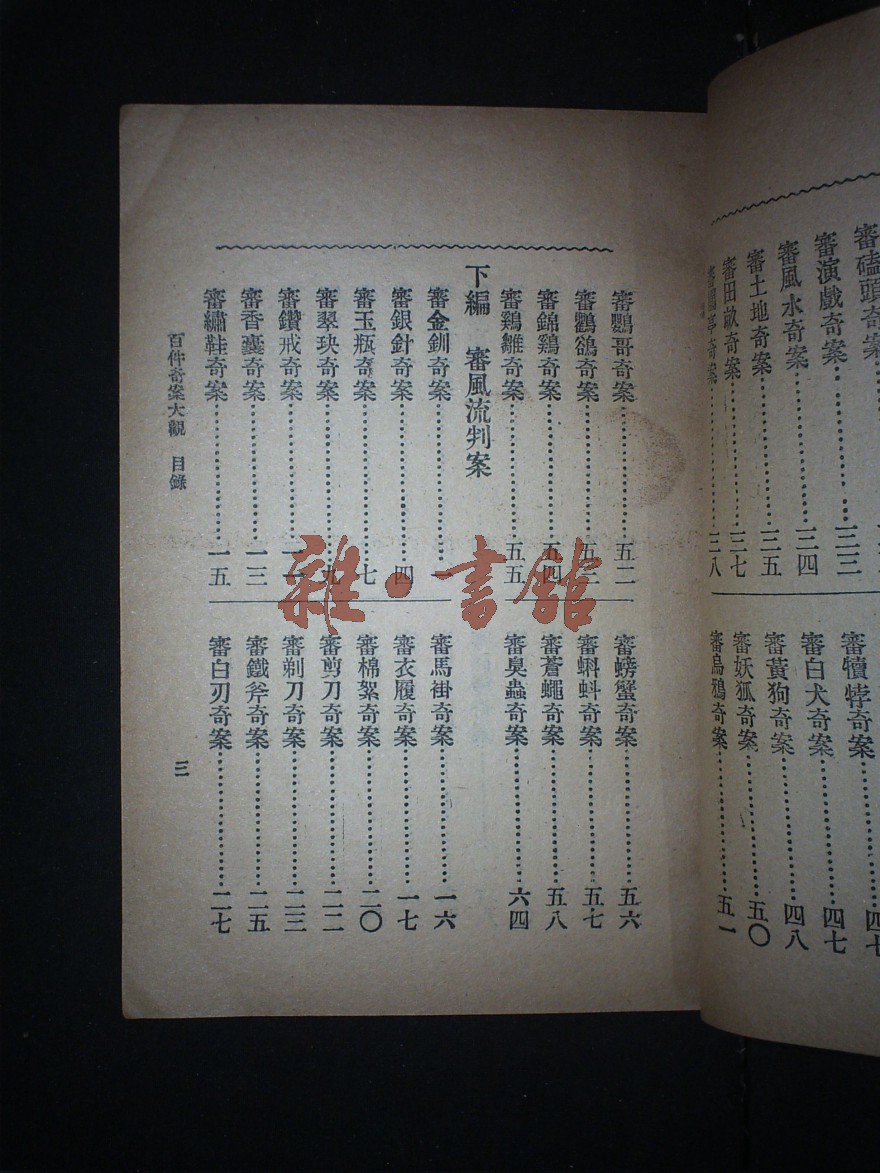 審磕頭奇案
審演戲奇案…………三三
審風水奇案…………三四
審土地奇案…………三五
審田畝奇案…………三七
亭奇案…………三八
審犢悖奇案…………四七
審白犬奇案…………四七
審黃狗奇案…………四八
審妖狐奇案…………五〇
審烏鴉奇案…………五一
審鸚哥奇案…………五二
審鸜鵒奇案…………五三
審錦鷄奇案…………五四
審鷄雛奇案…………五五
下編 審風流判案
審金釧奇案…………一
審銀針奇案…………四
審玉瓶奇案…………七
審翠玦奇案…………九
審鑽戒奇案…………一一
審香囊奇案…………一三
審繡鞋奇案…………一五
審螃蟹奇案…………五六
審蝌蚪奇案…………五七
審蒼蠅奇案…………五八
審臭蟲奇案…………六四
審馬褂奇案…………一六
審衣履奇案…………一七
審棉絮奇案…………二〇
審剪刀奇案…………二二
審剃刀奇案…………二三
審鐵斧奇案…………二五
審白刃奇案…………二七
百件奇案大觀 目錄
三
雜·書館